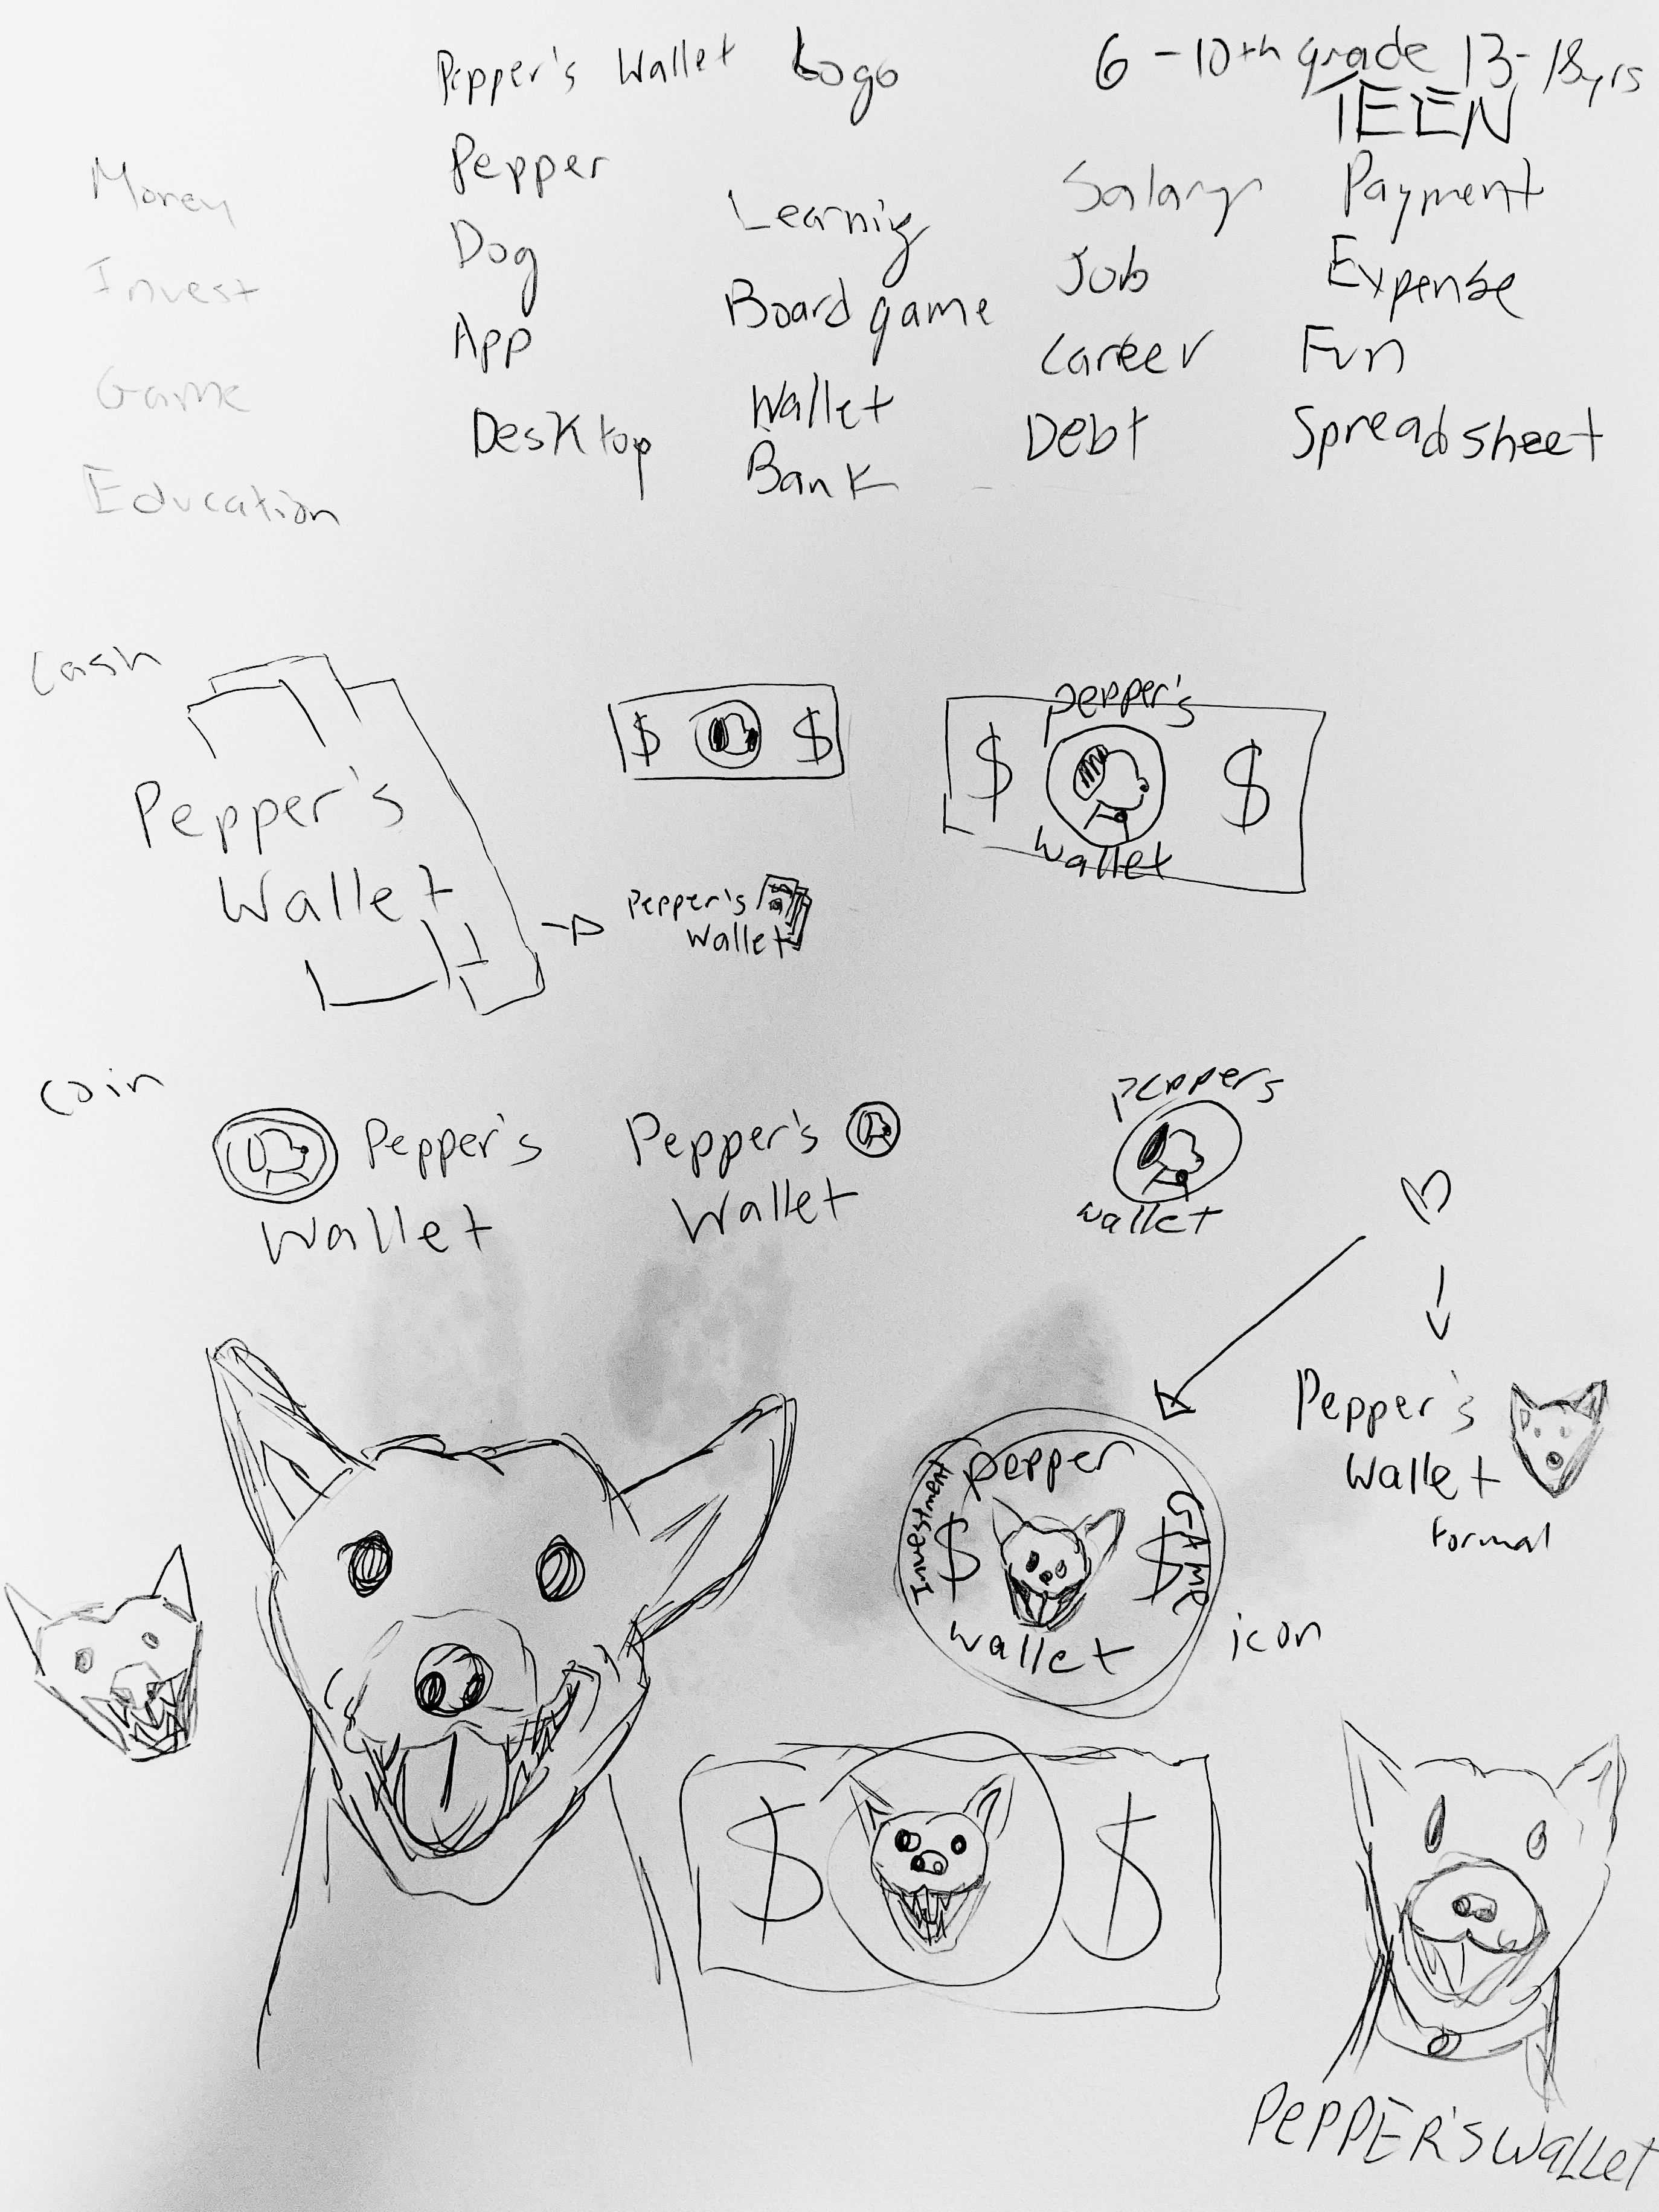 Pepper's Wallet Logo
6-10th grade 13-18yrs
TEEN
Money
Invest
Game
Education
Pepper
Dog
App
Desktop
Learnig
Board game
Wallet
Bank
Salary
Job
Career
Debt
Payment
Expense
Fun
Spreadsheet
Cash
Pepper's
Wallet
$ $
pepper's
$ $
wallet
Pepper's
Wallet
Coin
Pepper's
Wallet
Pepper's
Wallet
peppers
wallet
Pepper's
Wallet
Formal
pepper
Investment
$ $
GAME
wallet
icon
$ $
PEPPER'S WALLET